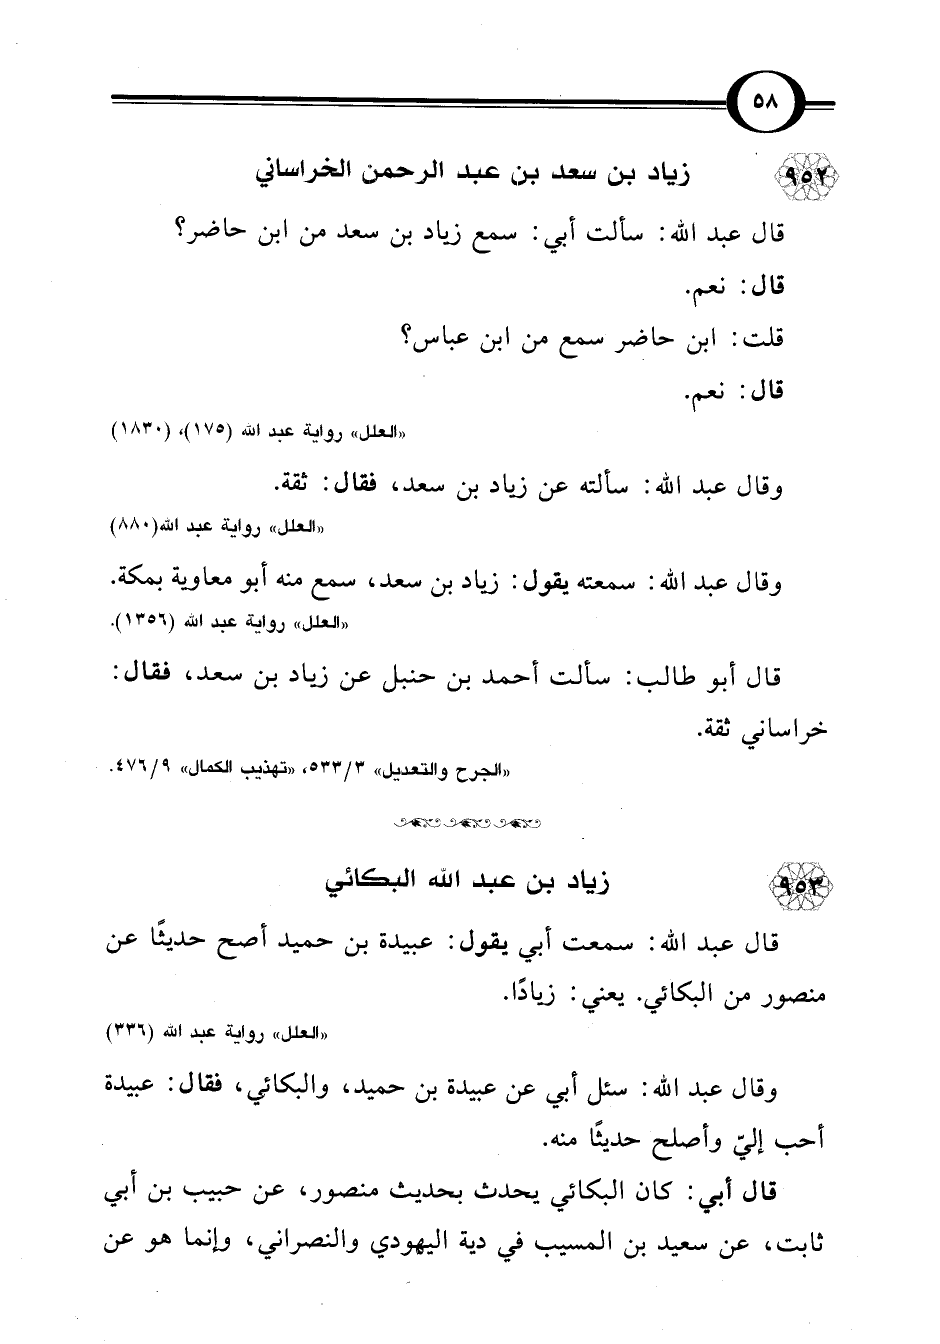 ٥٨
٩٥٢ زياد بن سعد بن عبد الرحمن الخراساني
قال عبد الله: سألت أبي: سمع زياد بن سعد من ابن حاضر؟
قال: نعم.
قلت: ابن حاضر سمع من ابن عباس؟
قال: نعم.
«العلل» رواية عبد الله (١٧٥)، (١٨٣٠)
وقال عبد الله: سألته عن زياد بن سعد، فقال: ثقة.
«العلل» رواية عبد الله(٨٨٠)
وقال عبد الله: سمعته يقول: زياد بن سعد، سمع منه أبو معاوية بمكة.
«العلل» رواية عبد الله (١٣٥٦).
قال أبو طالب: سألت أحمد بن حنبل عن زياد بن سعد، فقال:
خراساني ثقة.
«الجرح والتعديل» ٥٣٣/٣، «تهذيب الكمال» ٤٧٦/٩.
٩٥٣ زياد بن عبد الله البكائي
قال عبد الله: سمعت أبي يقول: عبيدة بن حميد أصح حديثًا عن
منصور من البكائي. يعني: زيادًا.
«العلل» رواية عبد الله (٣٣٦)
وقال عبد الله: سئل أبي عن عبيدة بن حميد، والبكائي، فقال: عبيدة
أحب إليّ وأصلح حديثًا منه.
قال أبي: كان البكائي يحدث بحديث منصور، عن حبيب بن أبي
ثابت، عن سعيد بن المسيب في دية اليهودي والنصراني، وإنما هو عن